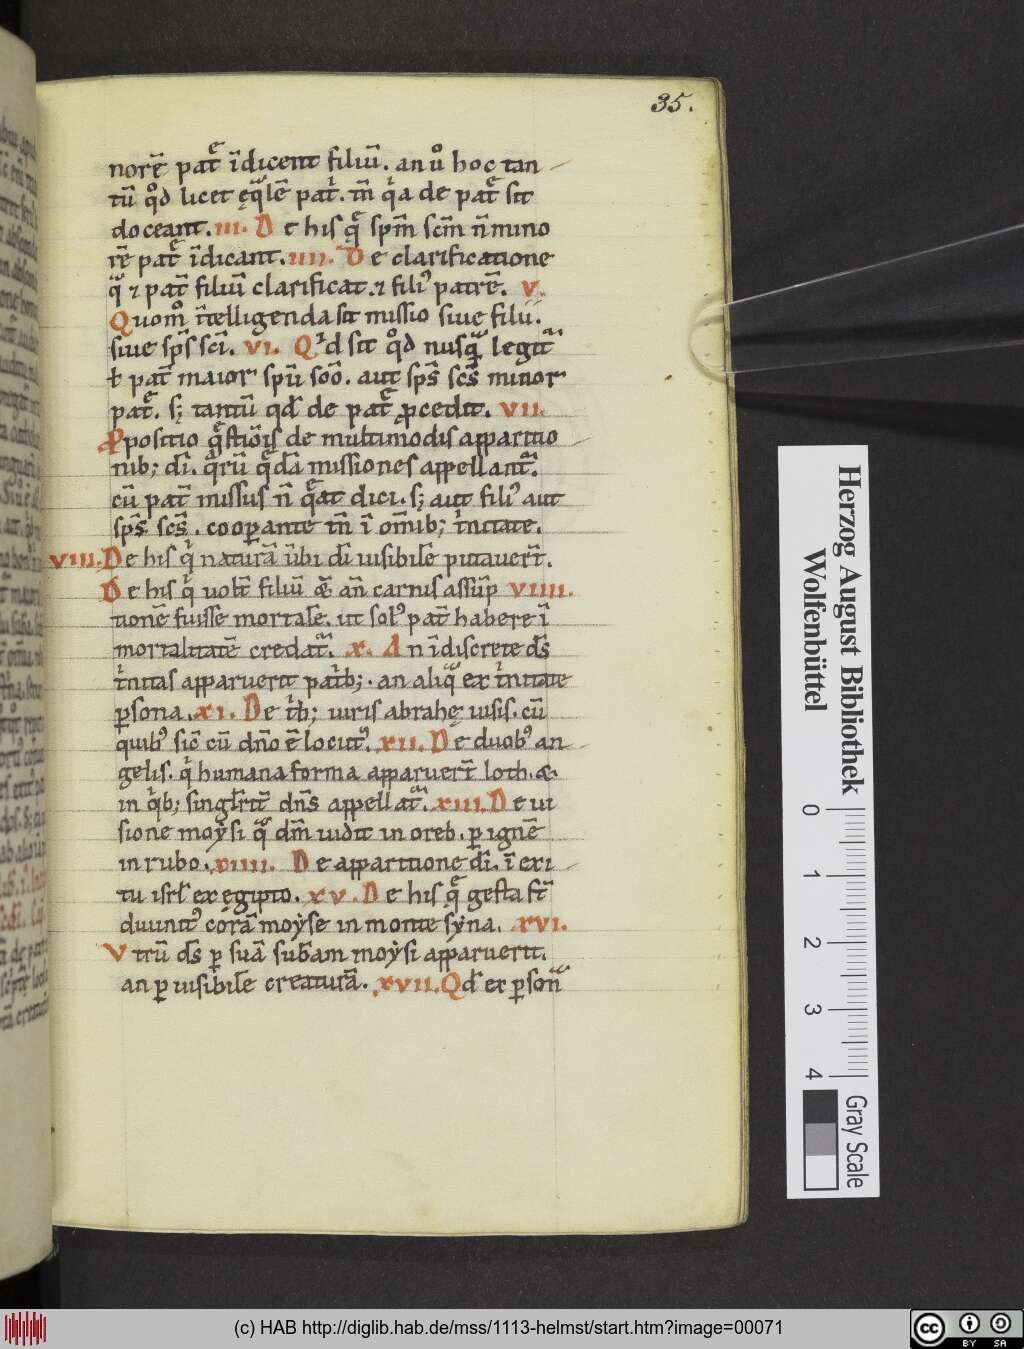 35.
norē pat̄ īdicent filiū. an ů hoc tan
tū qͦd licet ęqᷓlē pat̄. m̄ qia de patͤ sit
doceant. III. De his qͤ spm̄ scm̄ n̄ mino
rē patͤ īdicant. IIII. De clarificatione
qᷓ ⁊ pat̄ filiū clarificat. ⁊ filiꝰ patrē. V.
Quomͦ ītelligenda sit missio siue filii.
siue sps̄ sci̅. VI. Qid sit qͦd nusqᷓ legitᷓ
ł pat̄ maior spū soō. aut sps̄ scs̄ minor
patͤ. sꝫ tantū qđ de patͤ ꝓcedit. VII.
Ꝓpositio qͤstiōis de multimodis apparitio
nibꝫ dī. qᷓrū qͤdā missiones appellantᷓ.
cū pat̄ missus n̄ qͤat dici. sꝫ aut filiꝰ aut
sps̄ scs̄. cooꝑante tn̄ ī om̄ibꝫ tinitate.
VIII. De his qi naturā ūbi dī uisibilē putauer̄t.
De his qi uolt̄ filiū & an̄ carnis assūp VIIII.
tionē fuisse mortalē. ut solꝰ pat̄ habere ī
mortalitatē credatᷓ. X. An īdiscrete ds̄
tinitas apparuerit patibꝫ. an aliqᷓ ex tinitate
ꝑsona. XI. De tibꝫ uiris abrahę uisis. cū
quibꝰ sic̄ cū dn̄o ē locutꝰ. XII. De duobꝰ an
gelis. qi humana forma apparuer̄t loth. &
in qibꝫ singłritͤ dn̄s appellatᷓ. XIII. De ui
sione moẏsi qᷓ dm̄ uidit in oreb. ꝑ ignē
in rubo. XIIII. De apparitione dī. ī exi
tu isrł ex egipto. XV. De his qͤ gesta st̄
diuinitꝰ corā moẏse in monte sẏna. XVI.
Vtrū ds̄ ꝑ suā subam̄ moẏsi apparuerit.
an ꝑ uisibilē creaturā. XVII. Qđ ex ꝑsonᷓ
Herzog August Bibliothek
Wolfenbüttel
0 1 2 3 4
Gray Scale
(c) HAB http://diglib.hab.de/mss/1113-helmst/start.htm?image=00071
cc BY SA